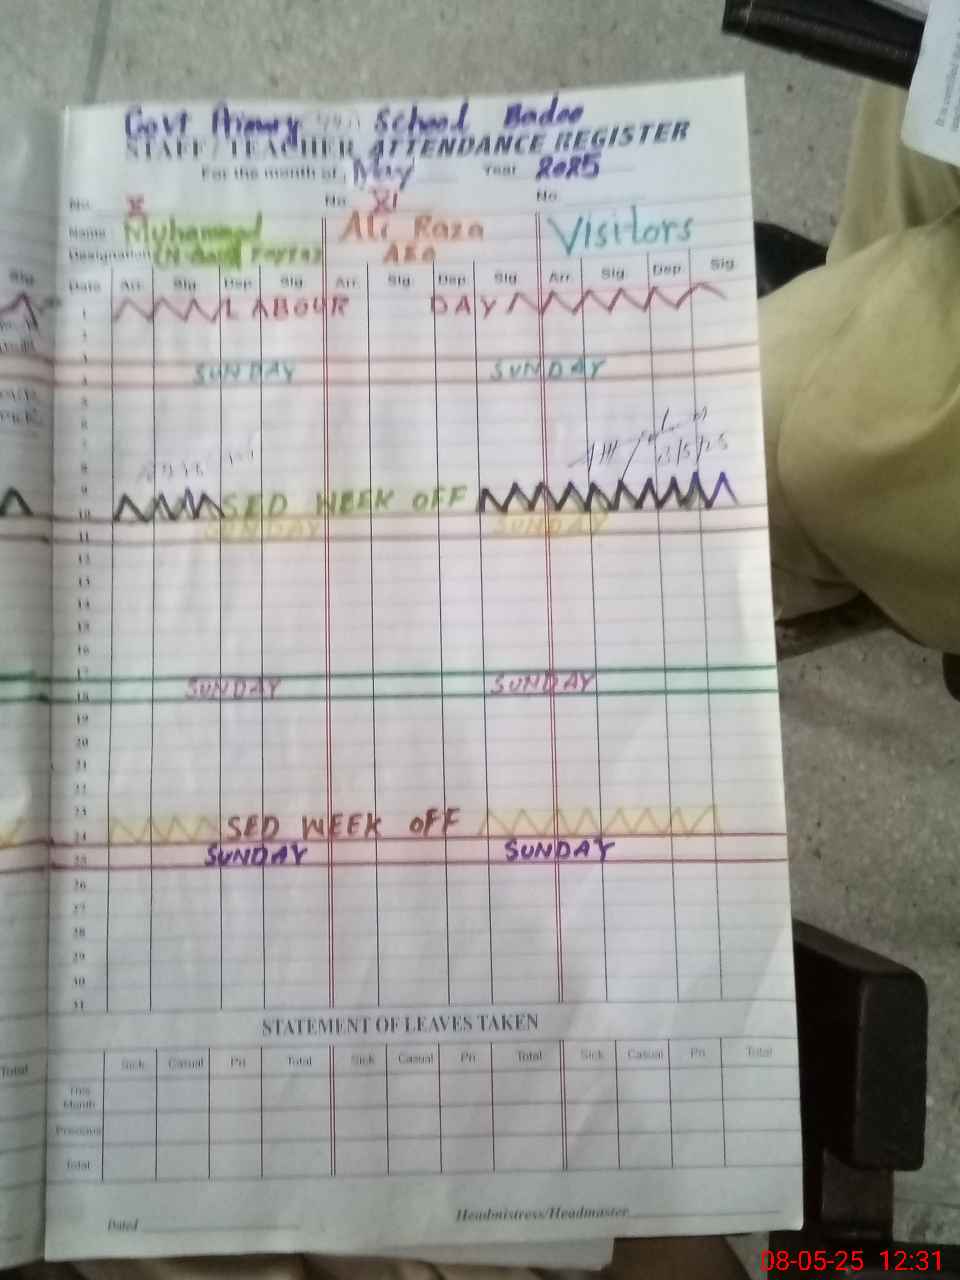 Govt Primary School Badoo
STAFF/TEACHER ATTENDANCE REGISTER
For the month of May Year 2025
No. X No. XI No
Name Muhammad Ali Raza Visitors
Designation AEO
Sig. Date Arr. Sig. Dep. Sig. Arr. Sig. Dep. Sig. Arr. Sig. Dep. Sig.
1 LABOUR DAY
2
3
SUNDAY SUNDAY
4
5
6
7
8
9 SED WEEK OFF
10
SUNDAY SUNDAY
11
12
13
14
15
16
17
SUNDAY SUNDAY
18
19
20
21
22
23 SED WEEK OFF
24
SUNDAY SUNDAY
25
26
27
28
29
30
31
STATEMENT OF LEAVES TAKEN
Total Sick Casual Pri. Total Sick Casual Pri. Total Sick Casual Pri. Total
This Month
Previous
Total
Dated
Headmistress/Headmaster
08-05-25 12:31